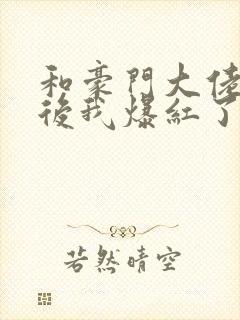 和豪門大佬
後我爆紅了
若然晴空